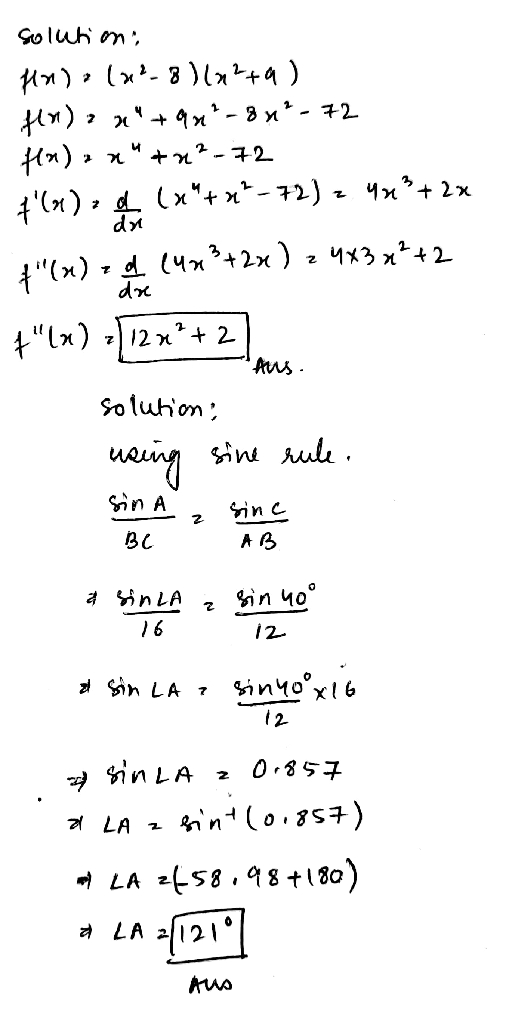 Solution:
f(x) = (x² - 8)(x² + 9)
f(x) = x⁴ + 9x² - 8x² - 72
f(x) = x⁴ + x² - 72
f'(x) = d/dx (x⁴ + x² - 72) = 4x³ + 2x
f''(x) = d/dx (4x³ + 2x) = 4×3x² + 2
f''(x) = 12x² + 2 Ans.
Solution:
using sine rule.
sin A / BC = sin C / AB
⇒ sin∠A / 16 = sin 40° / 12
⇒ sin∠A = sin40° × 16 / 12
⇒ sin∠A = 0.857
⇒ ∠A = sin⁻¹(0.857)
⇒ ∠A = (-58.98 + 180)
⇒ ∠A = 121°
Ans